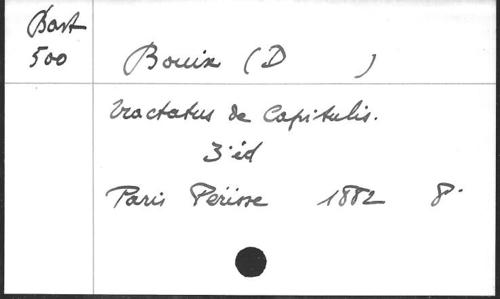 Bast
500
Bouix (D )
Tractatus de Capitulis.
3.éd
Paris Périsse 1882 8.